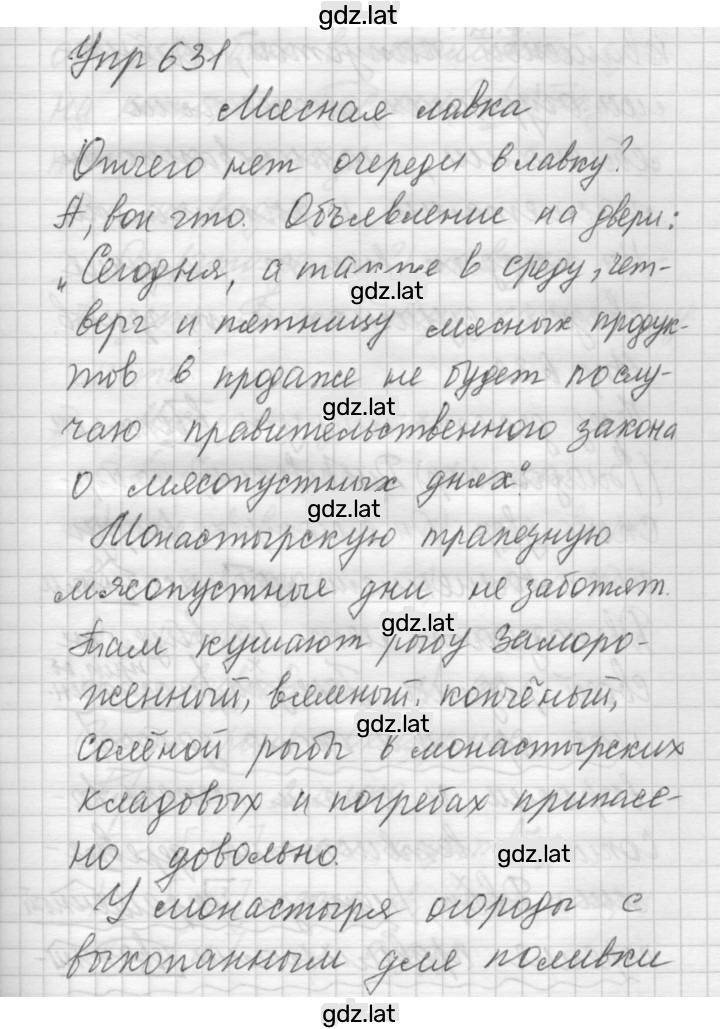 gdz.lat
Упр 631
Мясная лавка
Отчего нет очереди в лавку?
А, вон что. Объявление на двери:
„Сегодня, а также в среду, чет-
gdz.lat
верг и пятницу мясных продук-
тов в продаже не будет по слу-
gdz.lat
чаю правительственного закона
о мясопустных днях".
gdz.lat
Монастырскую трапезную
мясопустные дни не заботят.
gdz.lat
Там кушают рыбу заморо-
женный, вяленый, копчёный,
gdz.lat
солёной рыбы в монастырских
кладовых и погребах припасе-
но довольно.
gdz.lat
У монастыря огороды с
выкопанным для поливки
gdz.lat